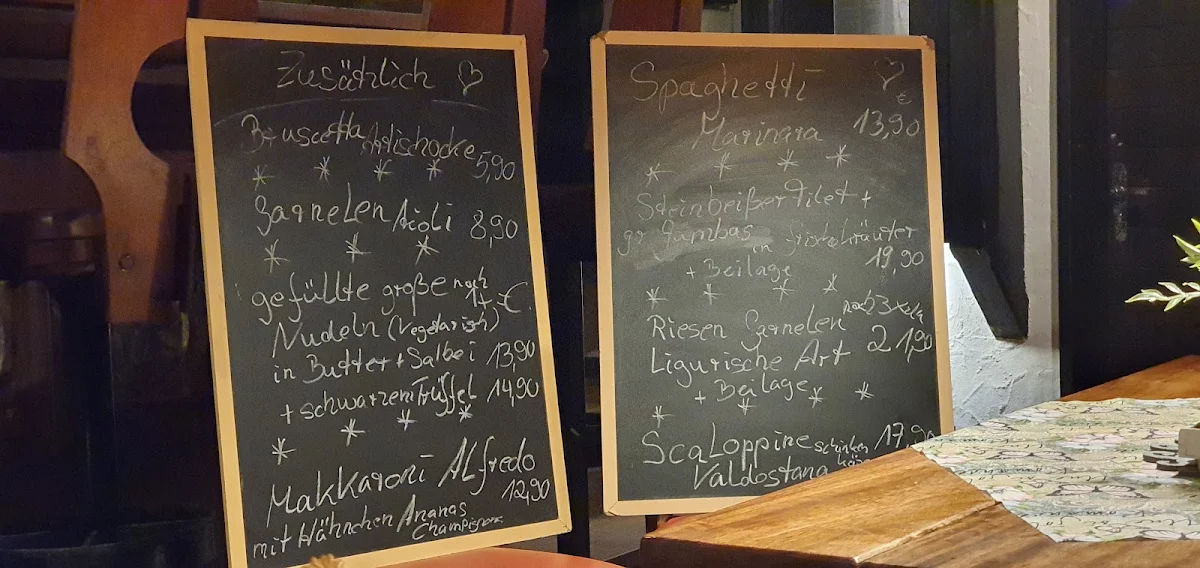 Zusätzlich
Bruscetta Artischocke 5,90
Garnelen Aioli 8,90
gefüllte große noch
Nudeln (Vegetarisch) €
in Butter + Salbei 13,90
+ schwarzem Trüffel 14,90
Makkaroni Alfredo
12,90
mit Hähnchen Ananas
Champignons
Spaghetti
€
Marinara 13,90
Steinbeißer Filet +
gr. Gambas in
19,90
+ Beilage
Riesen Garnelen noch 3
Ligurische Art 21,90
+ Beilage
Scaloppine schinken 17,90
Valdostana